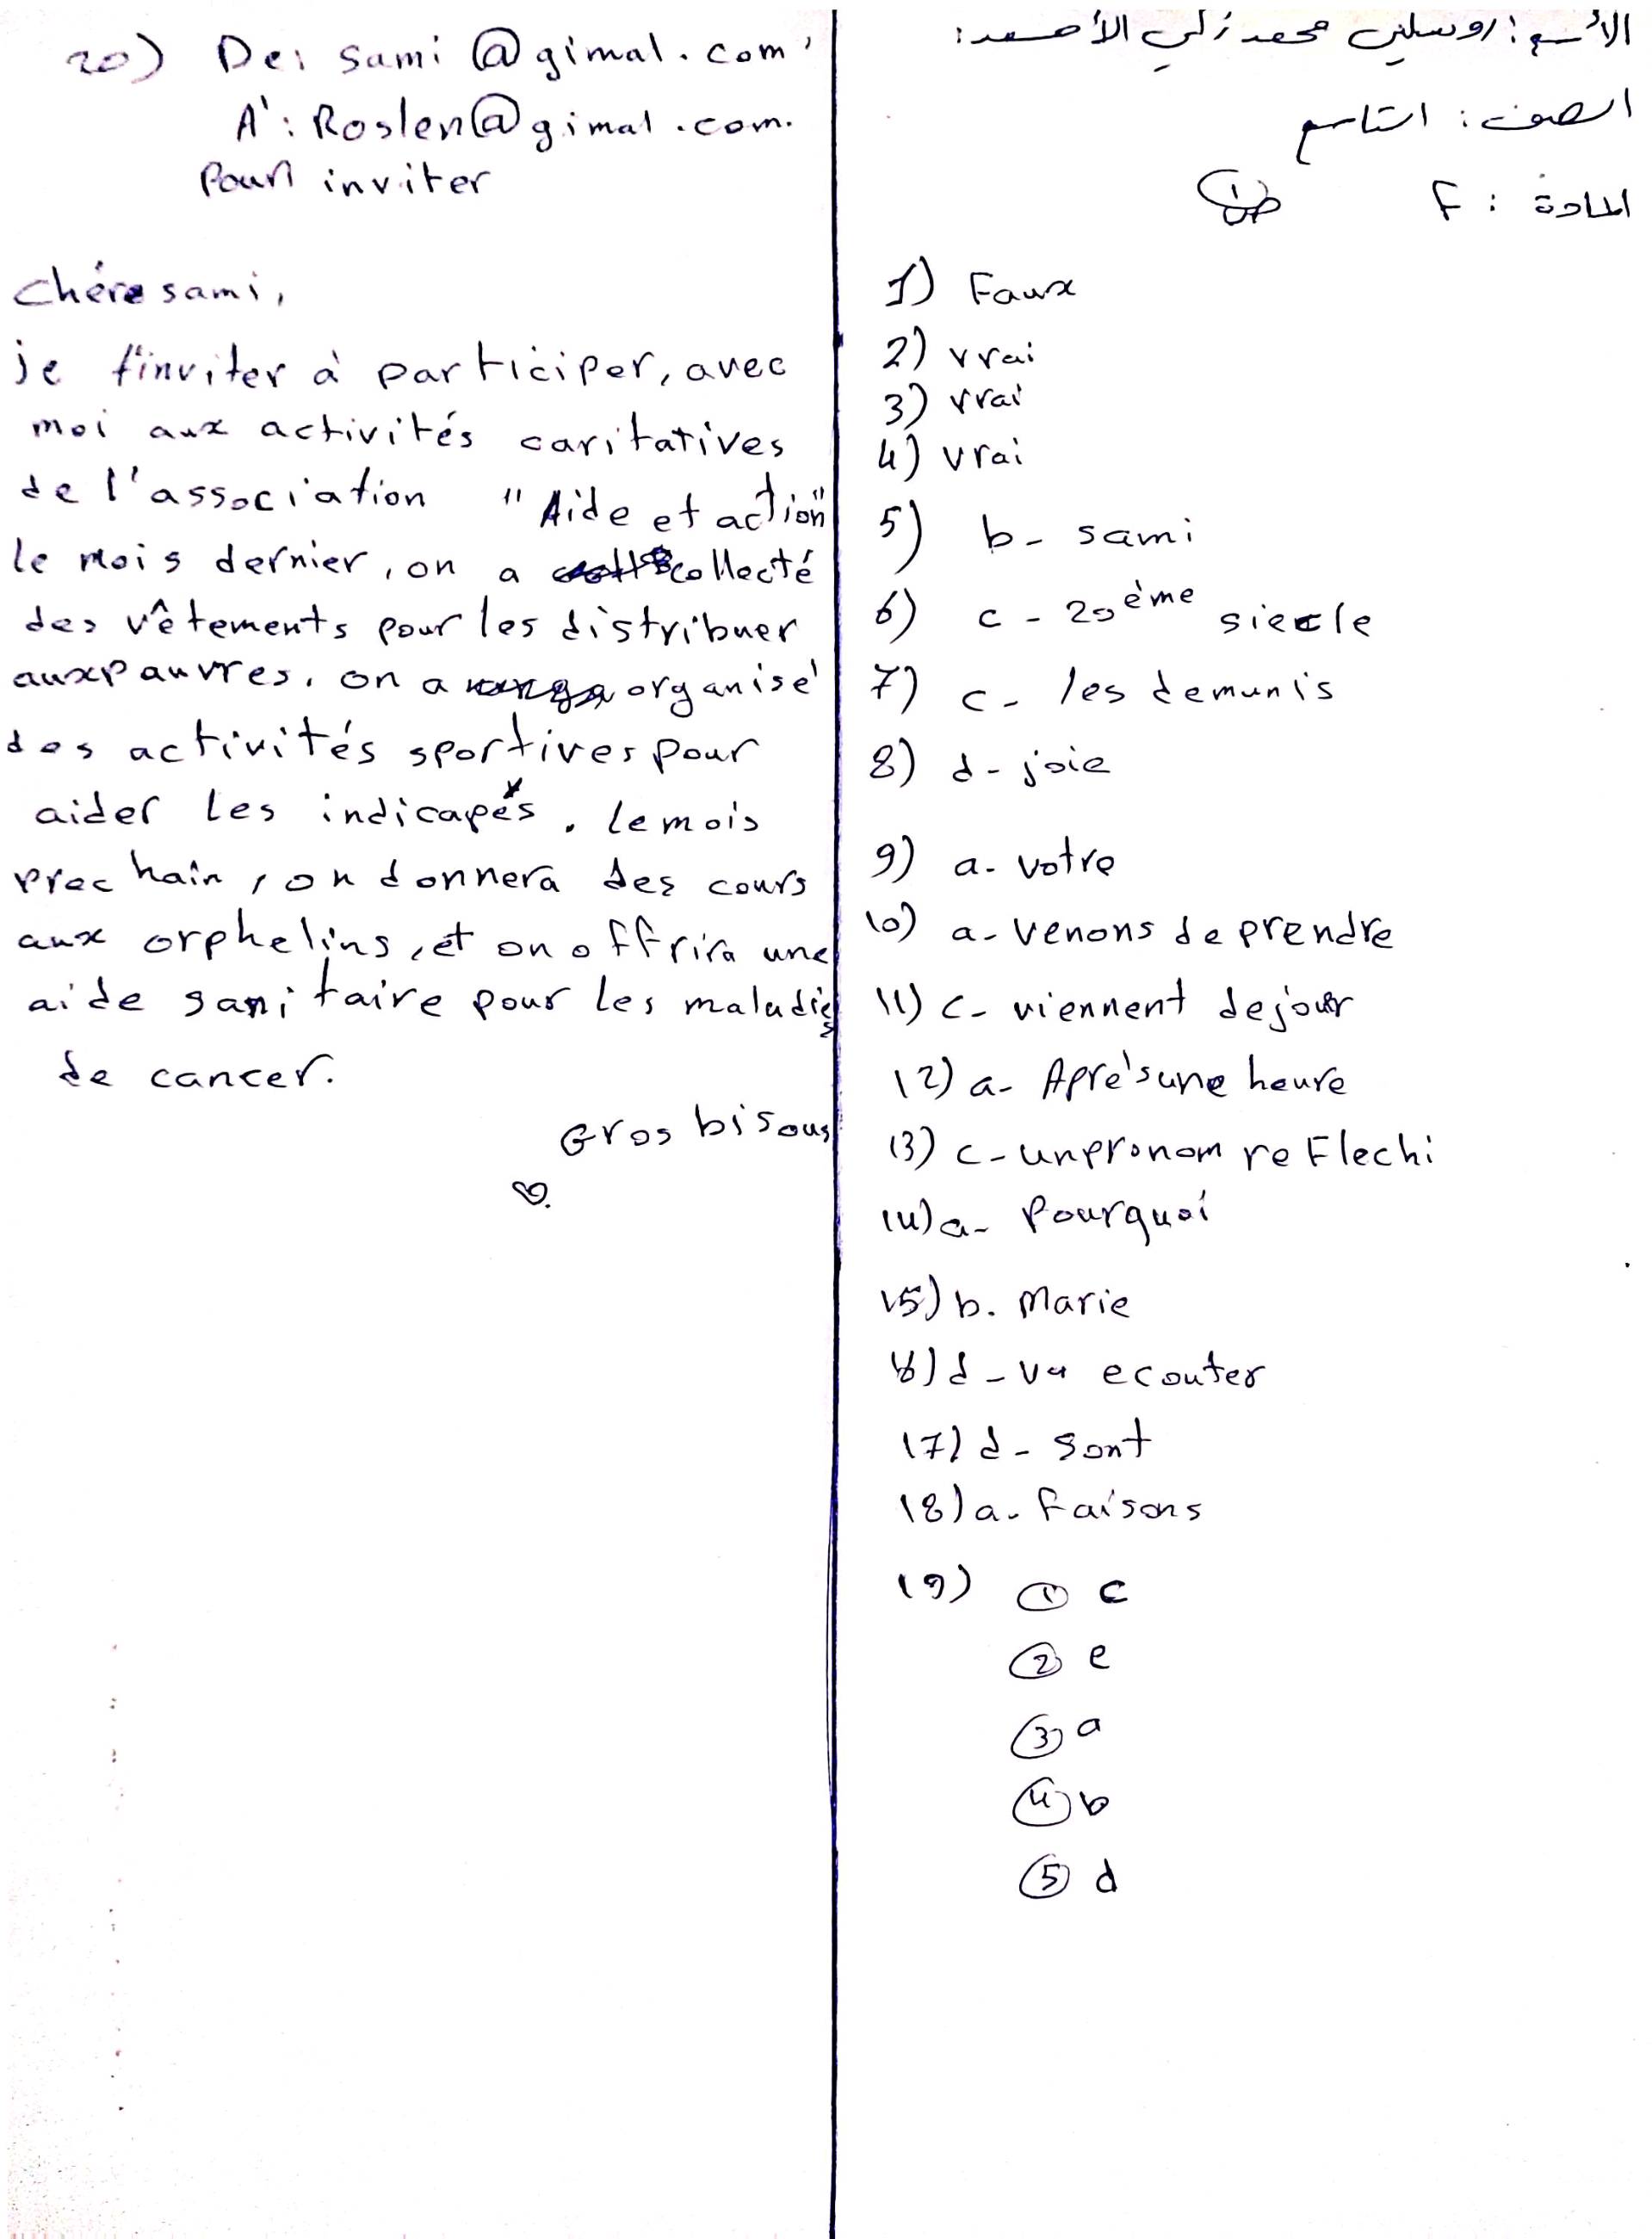 الأسم: روسلين محمد زكي الأحمد:
الصف: التاسع
المادة: F
1) Faux
2) vrai
3) vrai
4) vrai
5) b- sami
6) c - 20ème siecle
7) c- les demunis
8) d- joie
9) a- votre
10) a- venons de prendre
11) c- viennent dejour
12) a- Aprés une heure
13) c- un pronom reFlechi
14) a- Pourquoi
15) b. Marie
16) d- va ecouter
17) d- sont
18) a- Faisons
19) ① c
② e
③ a
④ b
⑤ d
20) De: sami@gimal.com
A': Roslen@gimal.com.
Pour inviter
chére sami,
je t'inviter à participer, avec
moi aux activités caritatives
de l'association "Aide et action"
le mois dernier, on a collecté
des vêtements pour les distribuer
aux pauvres. on a organisé
des activités sportives pour
aider les indicapés. le mois
prechain, on donnera des cours
aux orphelins, et on offrira une
aide sanitaire pour les maladies
de cancer.
Gros bisous